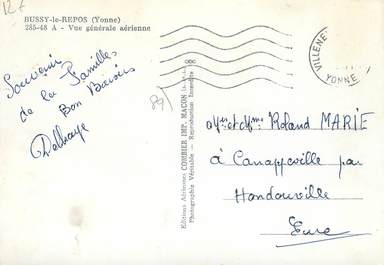 12€
BUSSY-le-REPOS (Yonne)
285-48 A - Vue générale aérienne
Souvenir
de la Famille
Bon Baisers
Delhaye
89
Editions Aériennes COMBIER IMP. MACON
Photographie Véritable - Reproduction Interdite
VILLENE
YONNE
Mr et Mme Roland MARIE
à Canappeville par
Hondouville
Eure